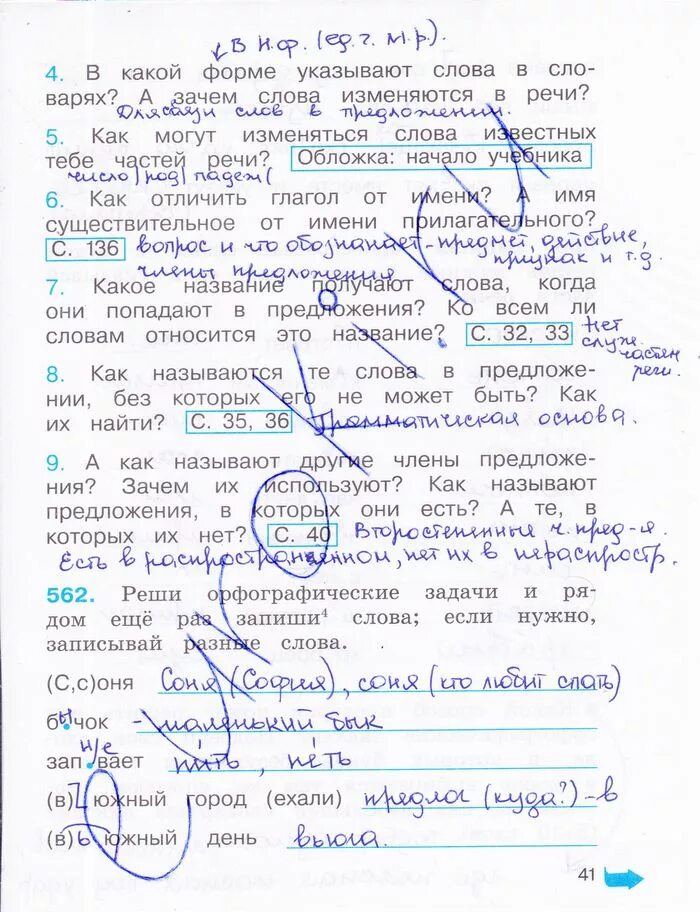 в н.ф. (ед.ч. м.р).
4. В какой форме указывают слова в сло-
варях? А зачем слова изменяются в речи?
Для связи слов в предложении.
5. Как могут изменяться слова известных
тебе частей речи? Обложка: начало учебника
число/род/падеж(
6. Как отличить глагол от имени? А имя
существительное от имени прилагательного?
С. 136 вопрос и что обозначает - предмет, действие,
признак и т.д.
члены предложения
7. Какое название получают слова, когда
они попадают в предложения? Ко всем ли
словам относится это название? С. 32, 33 Нет
служ.
частям
речи.
8. Как называются те слова в предложе-
нии, без которых его не может быть? Как
их найти? С. 35, 36 Грамматическая основа.
9. А как называют другие члены предложе-
ния? Зачем их используют? Как называют
предложения, в которых они есть? А те, в
которых их нет? С. 40 Второстепенные ч. пред-я.
Есть в распространённом, нет их в нераспростр.
562. Реши орфографические задачи и ря-
дом ещё раз запиши⁴ слова; если нужно,
записывай разные слова.
(С,с)оня Соня (София), соня (кто любит спать)
ы
б.чок - маленький бык
и/е
зап.вает пить, петь
(в) южный город (ехали) предлог (куда?) - в
(в)ь южный день вьюга.
41